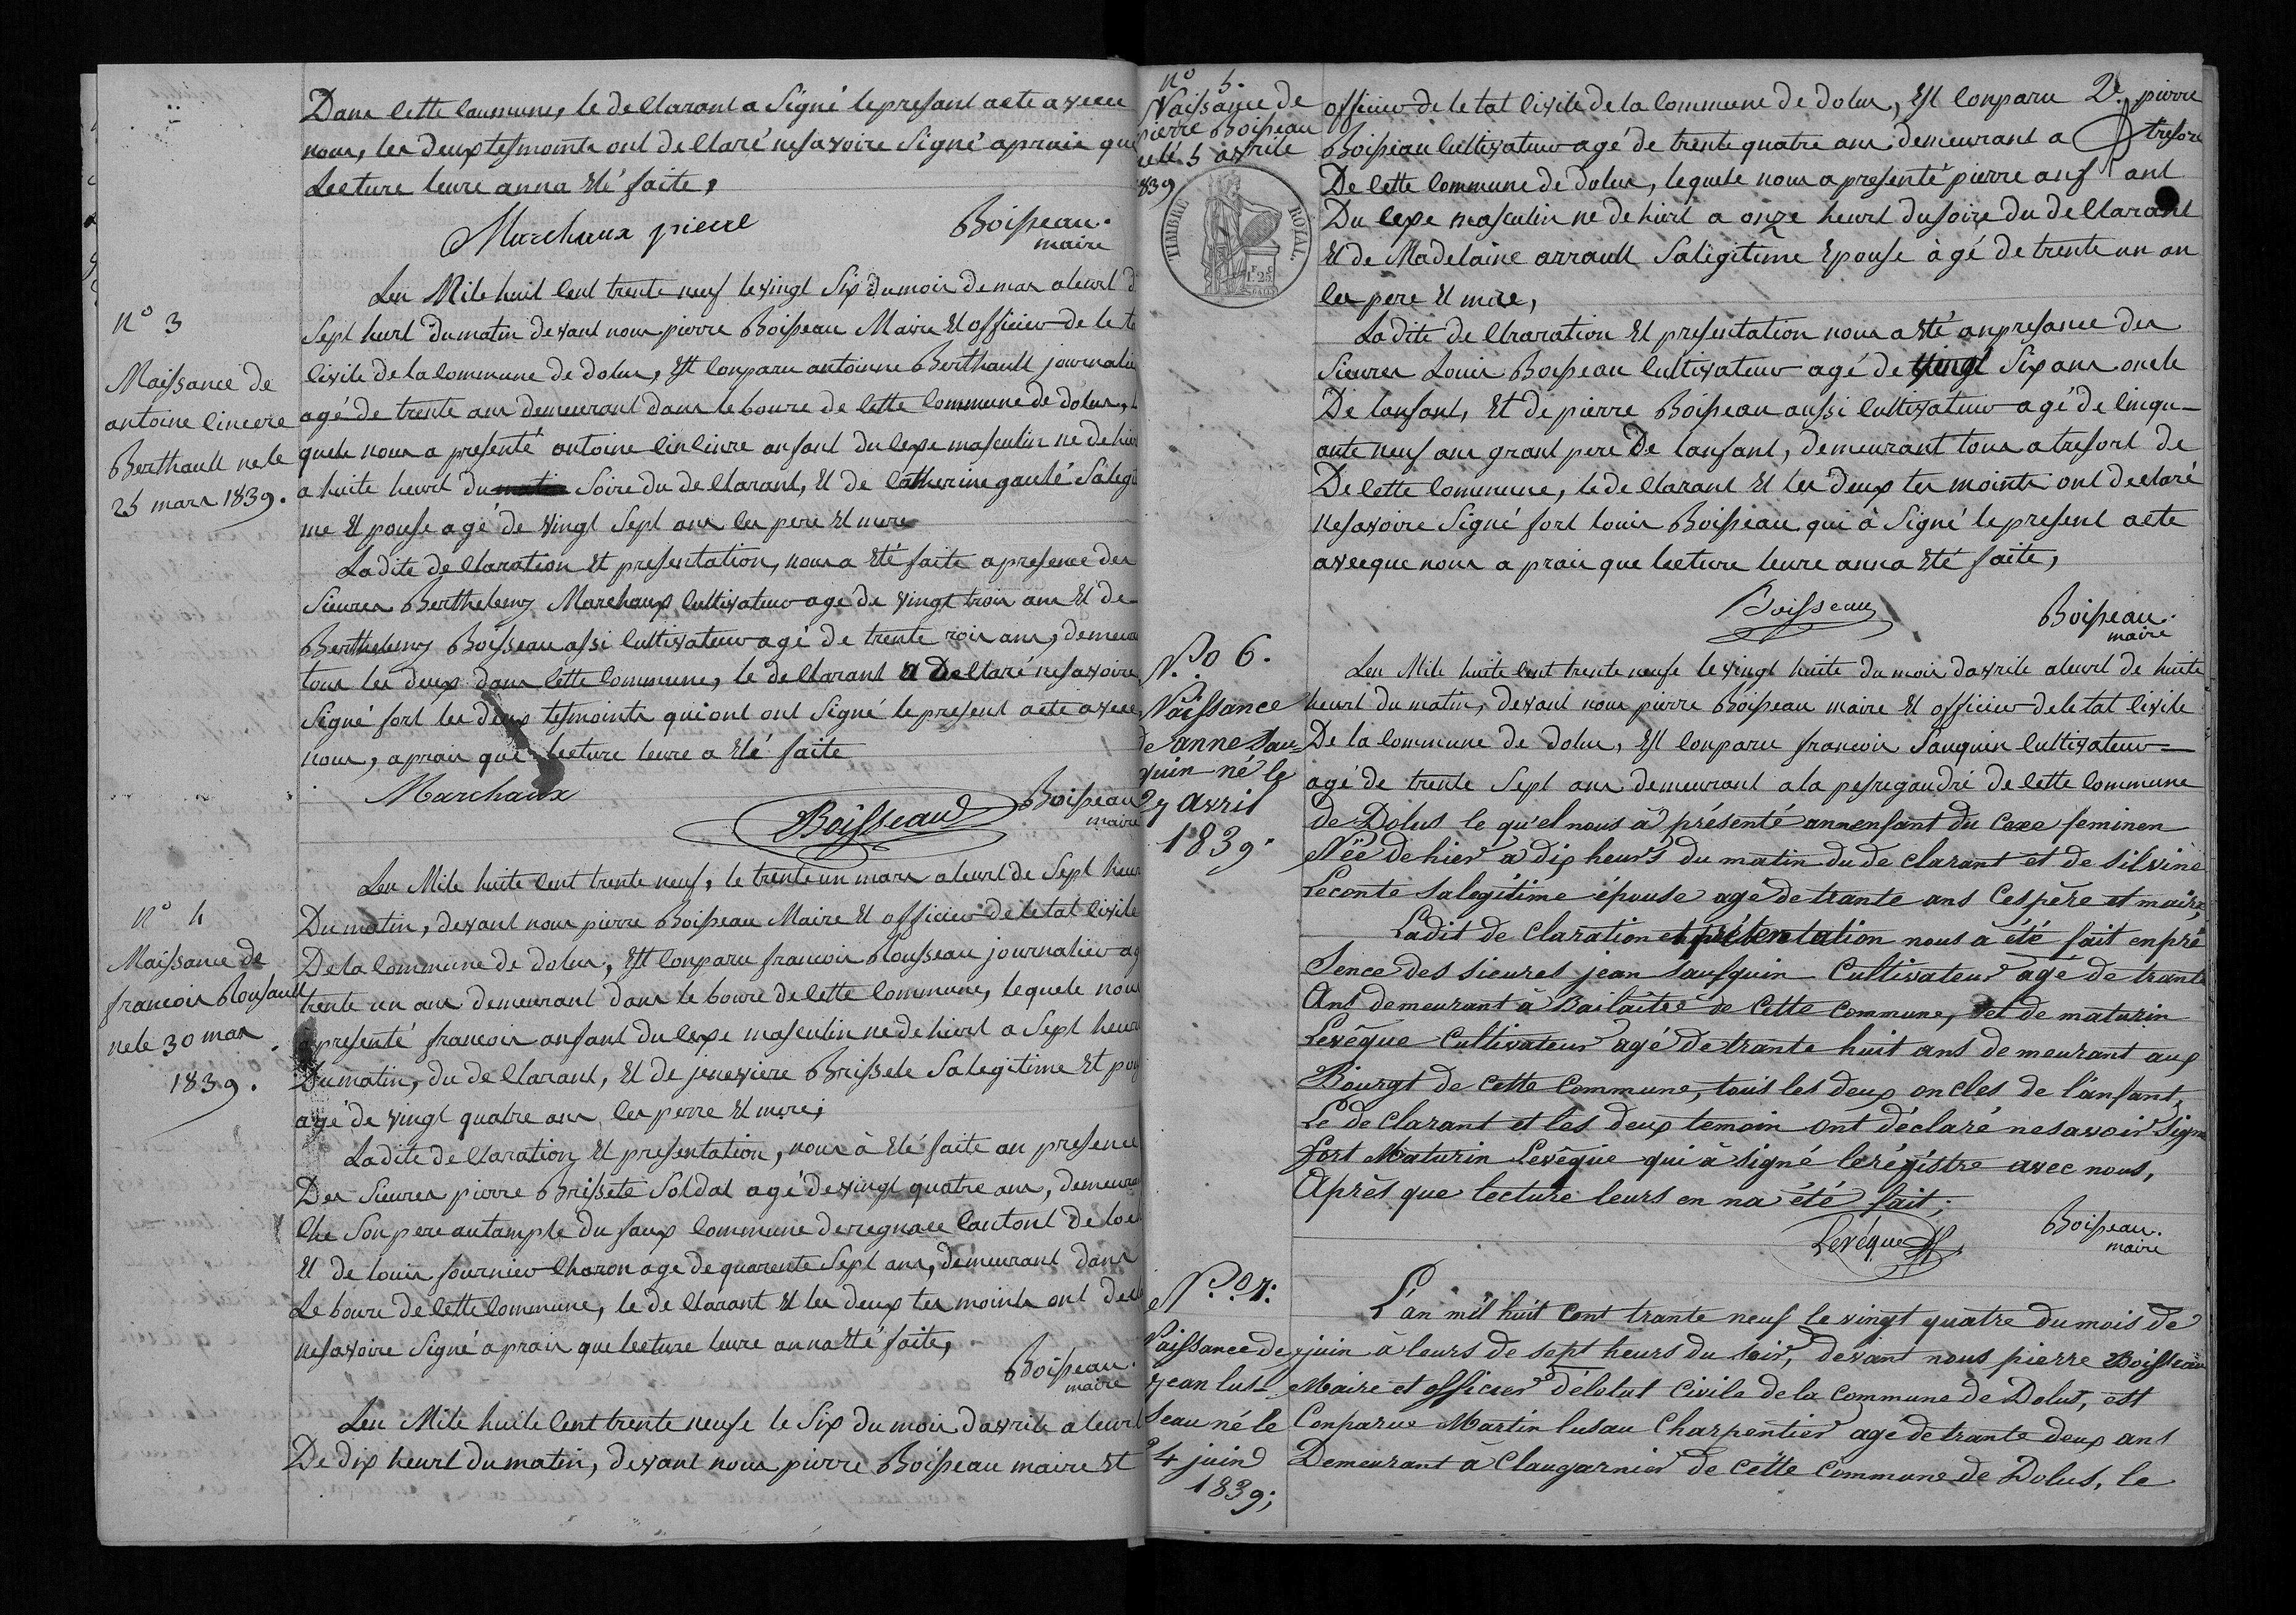 Dans cette Coumune, le declarant a Signé lepresant acte avecce
nous, les deux tesmoints ont declaré nesavoire Signé apraie que
Lecture leure anna Eté faite,
Marchaux pierre
Boisseau.
maire
n° 3
Naissance de
antoine
Berthault nele
25 mars 1839.
Leu Mile huit Cent trente neuf levingt Six dumois demar aleurt d
Sept heurt dumatin devant nous pierre Boisseau Maire Et officier de le t
Civile delacommune de dolus, Est conparu antoinne Berthault journalie
agé de trente ans demeurant dans lebourc de Cette Commune de dolus, l
quele nous a presenté antoine anfant du cexe masculin ne de hier
a huite heurt du matin Soire du declarant, Et de Catherine gaulé Salegit
me Et pouse agé de vingt Sept ans les pere Et mere
Ladite declaration Et presentation, nous a Eté faite apresence des
Sieures Berthelemy Marchaux Cultivateur age de vingt trois ans Et de
Berthelemy Boisseau assi Cultivateur agé de trente rois ans, demeura
tous les deux dans Cette Commune, le declarant a Declaré nesavoire
Signé fort les deux tesmoints quiont ont Signé le present acte avecce
nous, aprais que lecture leure a Eté faite
Marchaux
Boisseau
Boisseau
maire
n° 4
Naissance de
francois Rousault
nele 30 mar
1839.
Leu Mile huite Cent trente neuf, le trente un mars aleurt de Sept heur
Dumatin, devant nous pierre Boisseau Maire Et officier deletat Civile
Dela Commune de dolus, Est conparu francois Rousseau journalier ag
trente un ans demeurant dans le bourc delette Commune, lequele nous
apresenté francois anfant du cexe masculin nedehiert a Sept heurt
Dumatin, du declarant, Et de jenevieve Brissete Salegitime Et pou
agé de vingt quatre ans les perre Et mere,
Ladite declaration Et presentation, nous à Eté faite an presence
Des Sieures pierre Brissete Soldat agé de vingt quatre ans, demeuran
Che Son pere autample du faux Commune deregnace Cantont de loch
Et de louis fournier Charon age de quarente Sept ans, demeurant dans
Le bourc de Cette Commune, le declarant Et les deux tes moints ont decl
nesavoire Signé aprais que lecture leure anna Eté faite,
Boisseau.
maire
Leu Mile huite Cent trente neufe le Six du mois davrile aleurt
De dix heurt dumatin, devant nous pierre Boisseau maire Et
n° 5.
Naissance de
pierre Boisseau
nele 5 avrile
1839
TIMBRE ROYAL
1F 25C
2e
officier de letat Civile dela Commune de dolus, Est conparu pierre
Boisseau Cultivateur agé de trente quatre ans demeurant a tresort
De Cette Commune de dolus, lequele nous a presenté pierre anf ant
Du cexe masculin ne de hiert a onze heurt dusoire du declarant
Et de Madelaine arrault Salegitime Epouse àgé de trente un an
les pere Et mere,
Ladite de Claration Et presentation nous a Eté anpresance des
Sieures Louis Boisseau Cultivateur agé de vingt Six ans oncle
De lanfant, Et de pierre Boisseau aussi Cultivateur agé de Cinqu-
ante neuf ans grant pere De lanfant, demeurant tous a tresort de
De Cette Commune, le declarant Et les deux tes moints ont declaré
nesavoire Signé fort louis Boisseau qui à Signé le present acte
avecque nous a prais que lecture leure anna Eté faite,
Boisseau
Boisseau.
maire
No 6.
Naissance
de anne Sau=
quin né le
27 avril
1839.
Leu Mile huite Cent trente neufe le vingt huite du mois davrile aleurt de huite
heurt du matin, devant nous pierre Boisseau maire Et officier deletat Civile
De la Commune de dolus, Est conparu francois Sauquin Cultivateur=
agé de trente Sept ans demeurant ala pesregaudré de Cette Commune
de Dolus le qu'el nous à présenté annenfant du cexe feminen
Née de hier à dix heurs du matin du de clarant et de silvine
Leconte salegitime épouse agé de trante ans Ces père et maire,
Ladit de Claration et présentation nous à été fait enpré
Sence des sieures jean saufquin Cultivateur agé de trante
Ans demeurant à Bailaitée de Cette Commune, et de maturin
Levêque Cultivateur agé de trante huit ans demeurant aux
Bourgt de Cette Commune, touis les deux oncles de l'anfant,
Le de Clarant et les deux temoin ont déclaré nesavoir signe
Fort Maturin Levêque qui à signé lerégistre avec nous,
Après que lecture leurs en na été fait;
Levéque
Boisseau.
maire
No. 7.
Naissance de
jean lus-
seau né le
24 juin
1839;
L'an mil huit Cent trante neuf le vingt quatre du mois de
juin à leurs de sept heurs du soir, devant nous pierre Boisseau
Maire et officier délotat Civile de la Commune de Dolus, est
Conparue Martin lusau Charpentier agé de trante deux ans
Demeurant à Claugarnier de cette Commune de Dolus, le